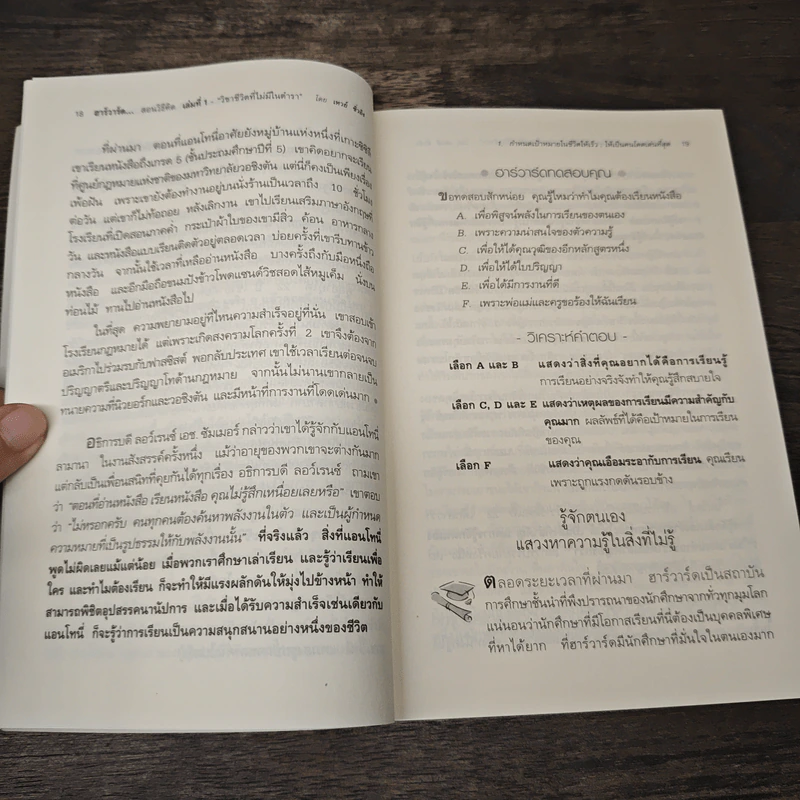 18 ฮาร์วาร์ด... สอนวิธีคิด เล่มที่ 1 - "วิชาชีวิตที่ไม่มีในตำรา" โดย
ที่ผ่านมา ตอนที่แอนโทนี่อาศัยยังหมู่บ้านแห่งหนึ่งที่เกาะซิซิลี
เขาเรียนหนังสือถึงเกรด 5 (ชั้นประถมศึกษาปีที่ 5) เขาคิดอยากจะเรียน
ที่ศูนย์กฎหมายแห่งชาติของมหาวิทยาลัยวอชิงตัน แต่นี่ก็คงเป็นเพียงเรื่อง
เพ้อฝัน เพราะเขายังต้องทำงานอยู่บนนั่งร้านเป็นเวลาถึง 10 ชั่วโมง
ต่อวัน แต่เขาก็ไม่ท้อถอย หลังเลิกงาน เขาไปเรียนเสริมภาษาอังกฤษที่
โรงเรียนที่เปิดสอนภาคค่ำ กระเป๋าผ้าใบของเขามีสิ่ว ค้อน อาหารกลาง
วัน และหนังสือแบบเรียนติดตัวอยู่ตลอดเวลา บ่อยครั้งที่เขารีบทานข้าว
กลางวัน จากนั้นใช้เวลาที่เหลืออ่านหนังสือ บางครั้งถึงกับมือหนึ่งถือ
หนังสือ และอีกมือถือขนมปังข้าวโพดแซนด์วิชสอดไส้หมูเค็ม นั่งบน
ท่อนไม้ ทานไปอ่านหนังสือไป
ในที่สุด ความพยายามอยู่ที่ไหนความสำเร็จอยู่ที่นั่น เขาสอบเข้า
โรงเรียนกฎหมายได้ แต่เพราะเกิดสงครามโลกครั้งที่ 2 เขาจึงต้องจาก
อเมริกาไปร่วมรบกับฟาสซิสต์ พอกลับประเทศ เขาใช้เวลาเรียนต่อจนจบ
ปริญญาตรีและปริญญาโทด้านกฎหมาย จากนั้นไม่นานเขากลายเป็น
ทนายความที่นิวยอร์กและวอชิงตัน และมีหน้าที่การงานที่โดดเด่นมาก
อธิการบดี ลอว์เรนซ์ เอช. ซัมเมอร์ กล่าวว่าเขาได้รู้จักกับแอนโทนี่
ลามานา ในงานสังสรรค์ครั้งหนึ่ง แม้ว่าอายุของพวกเขาจะต่างกันมาก
แต่กลับเป็นเพื่อนสนิทที่คุยกันได้ทุกเรื่อง อธิการบดี ลอว์เรนซ์ ถามเขา
ว่า "ตอนที่อ่านหนังสือ เรียนหนังสือ คุณไม่รู้สึกเหนื่อยเลยหรือ" เขาตอบ
ว่า "ไม่หรอกครับ คนทุกคนต้องค้นหาพลังงานในตัว และเป็นผู้กำหนด
ความหมายที่เป็นรูปธรรมให้กับพลังงานนั้น" ที่จริงแล้ว สิ่งที่แอนโทนี่
พูดไม่ผิดเลยแม้แต่น้อย เมื่อพวกเราศึกษาเล่าเรียน และรู้ว่าเรียนเพื่อ
ใคร และทำไมต้องเรียน ก็จะทำให้มีแรงผลักดันให้มุ่งไปข้างหน้า ทำให้
สามารถพิชิตอุปสรรคนานัปการ และเมื่อได้รับความสำเร็จเช่นเดียวกับ
แอนโทนี่ ก็จะรู้ว่าการเรียนเป็นความสนุกสนานอย่างหนึ่งของชีวิต
1 กำหนดเป้าหมายในชีวิตให้เร็ว : ให้เป็นคนโดดเด่นที่สุด 19
ฮาร์วาร์ดทดสอบคุณ
ขอทดสอบสักหน่อย คุณรู้ไหมว่าทำไมคุณต้องเรียนหนังสือ
A. เพื่อพิสูจน์พลังในการเรียนของตนเอง
B. เพราะความน่าสนใจของตัวความรู้
C. เพื่อให้ได้คุณวุฒิของอีกหลักสูตรหนึ่ง
D. เพื่อให้ได้ใบปริญญา
E. เพื่อได้มีการงานที่ดี
F. เพราะพ่อแม่และครูขอร้องให้ฉันเรียน
- วิเคราะห์คำตอบ -
เลือก A และ B แสดงว่าสิ่งที่คุณอยากได้คือการเรียนรู้
การเรียนอย่างจริงจังทำให้คุณรู้สึกสบายใจ
เลือก C, D และ E แสดงว่าเหตุผลของการเรียนมีความสำคัญกับ
คุณมาก ผลลัพธ์ที่ได้คือเป้าหมายในการเรียน
ของคุณ
เลือก F แสดงว่าคุณเอือมระอากับการเรียน คุณเรียน
เพราะถูกแรงกดดันรอบข้าง
รู้จักตนเอง
แสวงหาความรู้ในสิ่งที่ไม่รู้
ตลอดระยะเวลาที่ผ่านมา ฮาร์วาร์ดเป็นสถาบัน
การศึกษาชั้นนำที่พึงปรารถนาของนักศึกษาจากทั่วทุกมุมโลก
แน่นอนว่านักศึกษาที่มีโอกาสเรียนที่นี่ต้องเป็นบุคคลพิเศษ
ที่หาได้ยาก ที่ฮาร์วาร์ดมีนักศึกษาที่มั่นใจในตนเองมาก